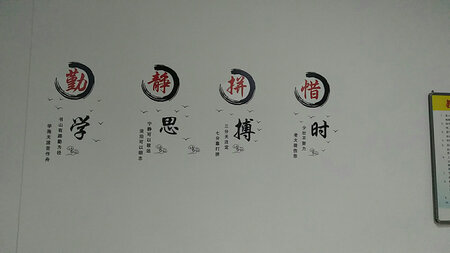 勤
学
书山有路勤为径
学海无涯苦作舟
静
思
宁静可以致远
淡泊可以明志
拼
搏
三分天注定
七分靠打拼
惜
时
少壮不努力
老大徒伤悲